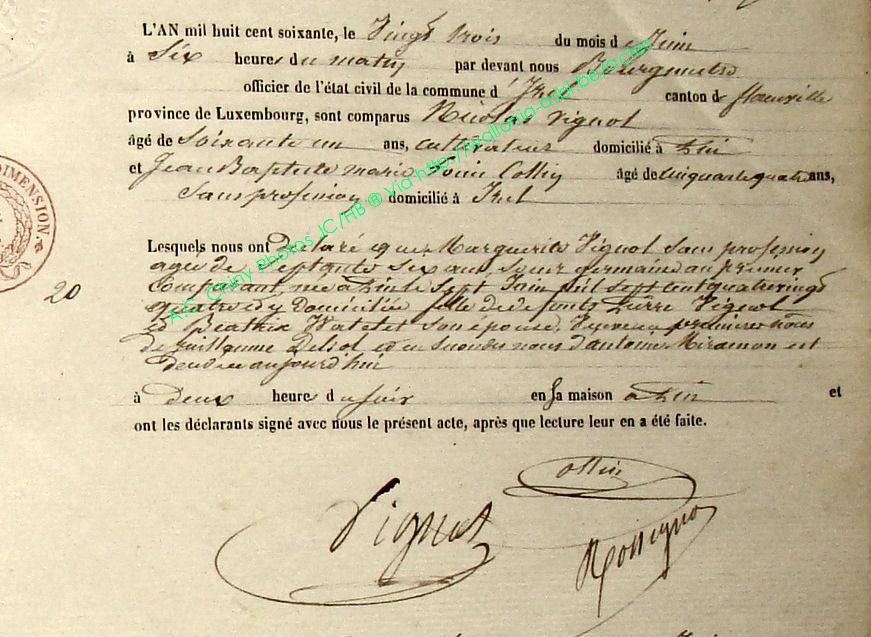 L'AN mil huit cent soixante, le Vingt trois du mois d Juin
à Six heures du matin par devant nous Bourgmestre
officier de l'état civil de la commune d' Izel canton de florenville
province de Luxembourg, sont comparus Nicolas Vignol
âgé de Soixante un ans, cultivateur domicilié à
et Jean Baptiste marie Collin âgé de cinquante quatre ans,
Sans profession domicilié à Izel
Lesquels nous ont Declaré que Marguerite Vignol Sans profession
agée de Septante Six ans, Soeur germaine au premier
Comparant née à le Sept Juin mil Sept cent quatre vingt
quatre et y Domiciliée fille de defunts Pierre Vignol
et Beatrix Watelet Son épouse, Veuve en premiere noces
de Guillaume et en Secondes noces d'antoine Miramon est
decedée aujourd'hui
à Deux heures du Soir en Sa maison à et
ont les déclarants signé avec nous le présent acte, après que lecture leur en a été faite.
20
DIMENSION.
A.C. Chiny Photos JC/HB ® Via http://wallonia-asbl.be/actes
Vignol
Collin
Rossignon